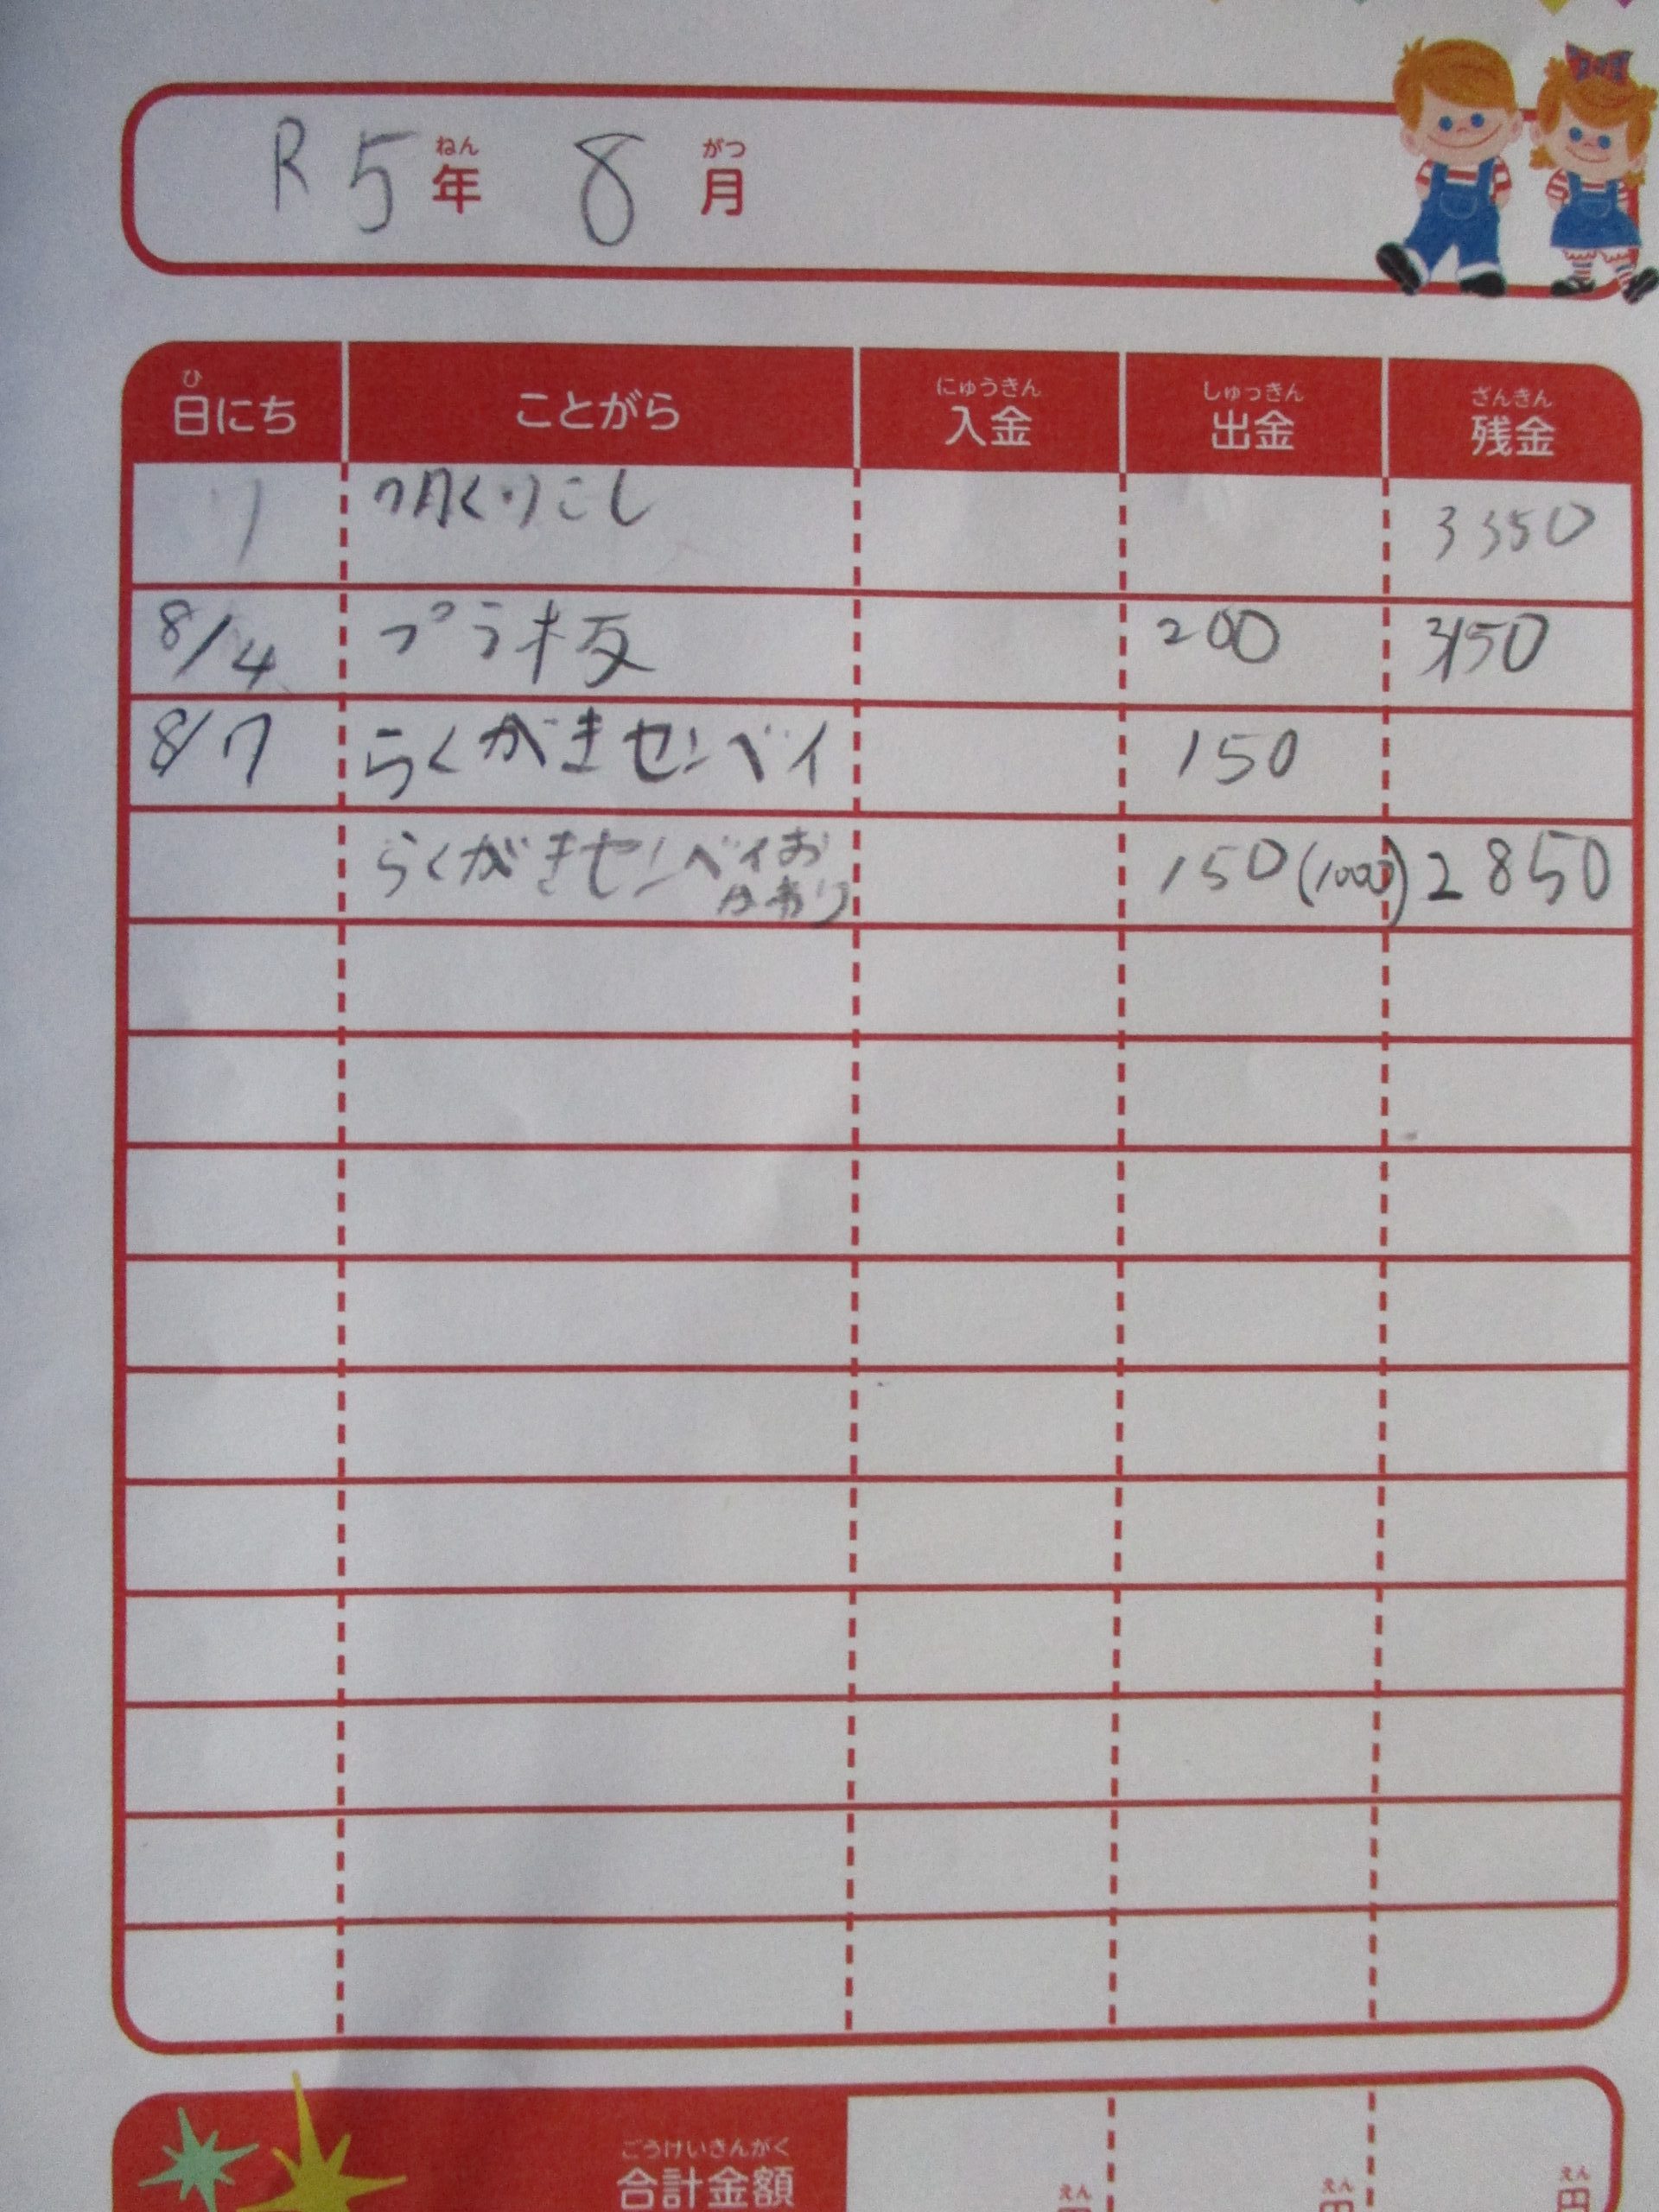 ねん がつ
R 5年 8月
ひ にゅうきん しゅっきん ざんきん
日にち ことがら 入金 出金 残金
7月くりこし 3350
8/4 プラ板 200 3150
8/7 らくがきセンベイ 150
らくがきセンベイお 150(1000) 2850
かわり
ごうけいきんがく
合計金額
えん えん えん
円 円 円